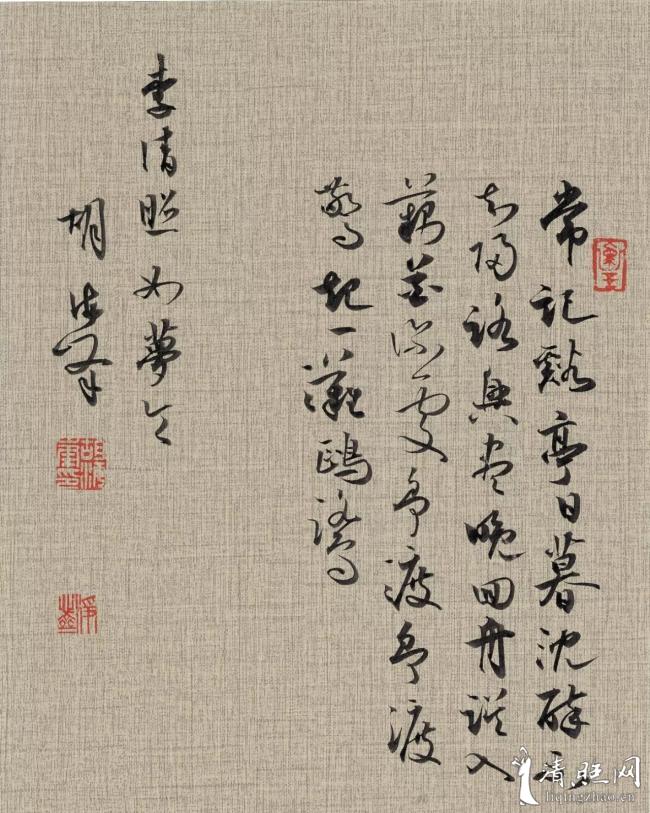 常記谿亭日暮沈醉不
知歸路興盡晚回舟誤入
藕花深處爭渡爭渡
驚起一灘鷗鷺
李清照如夢令
胡
清照网
liqingzhao.cn